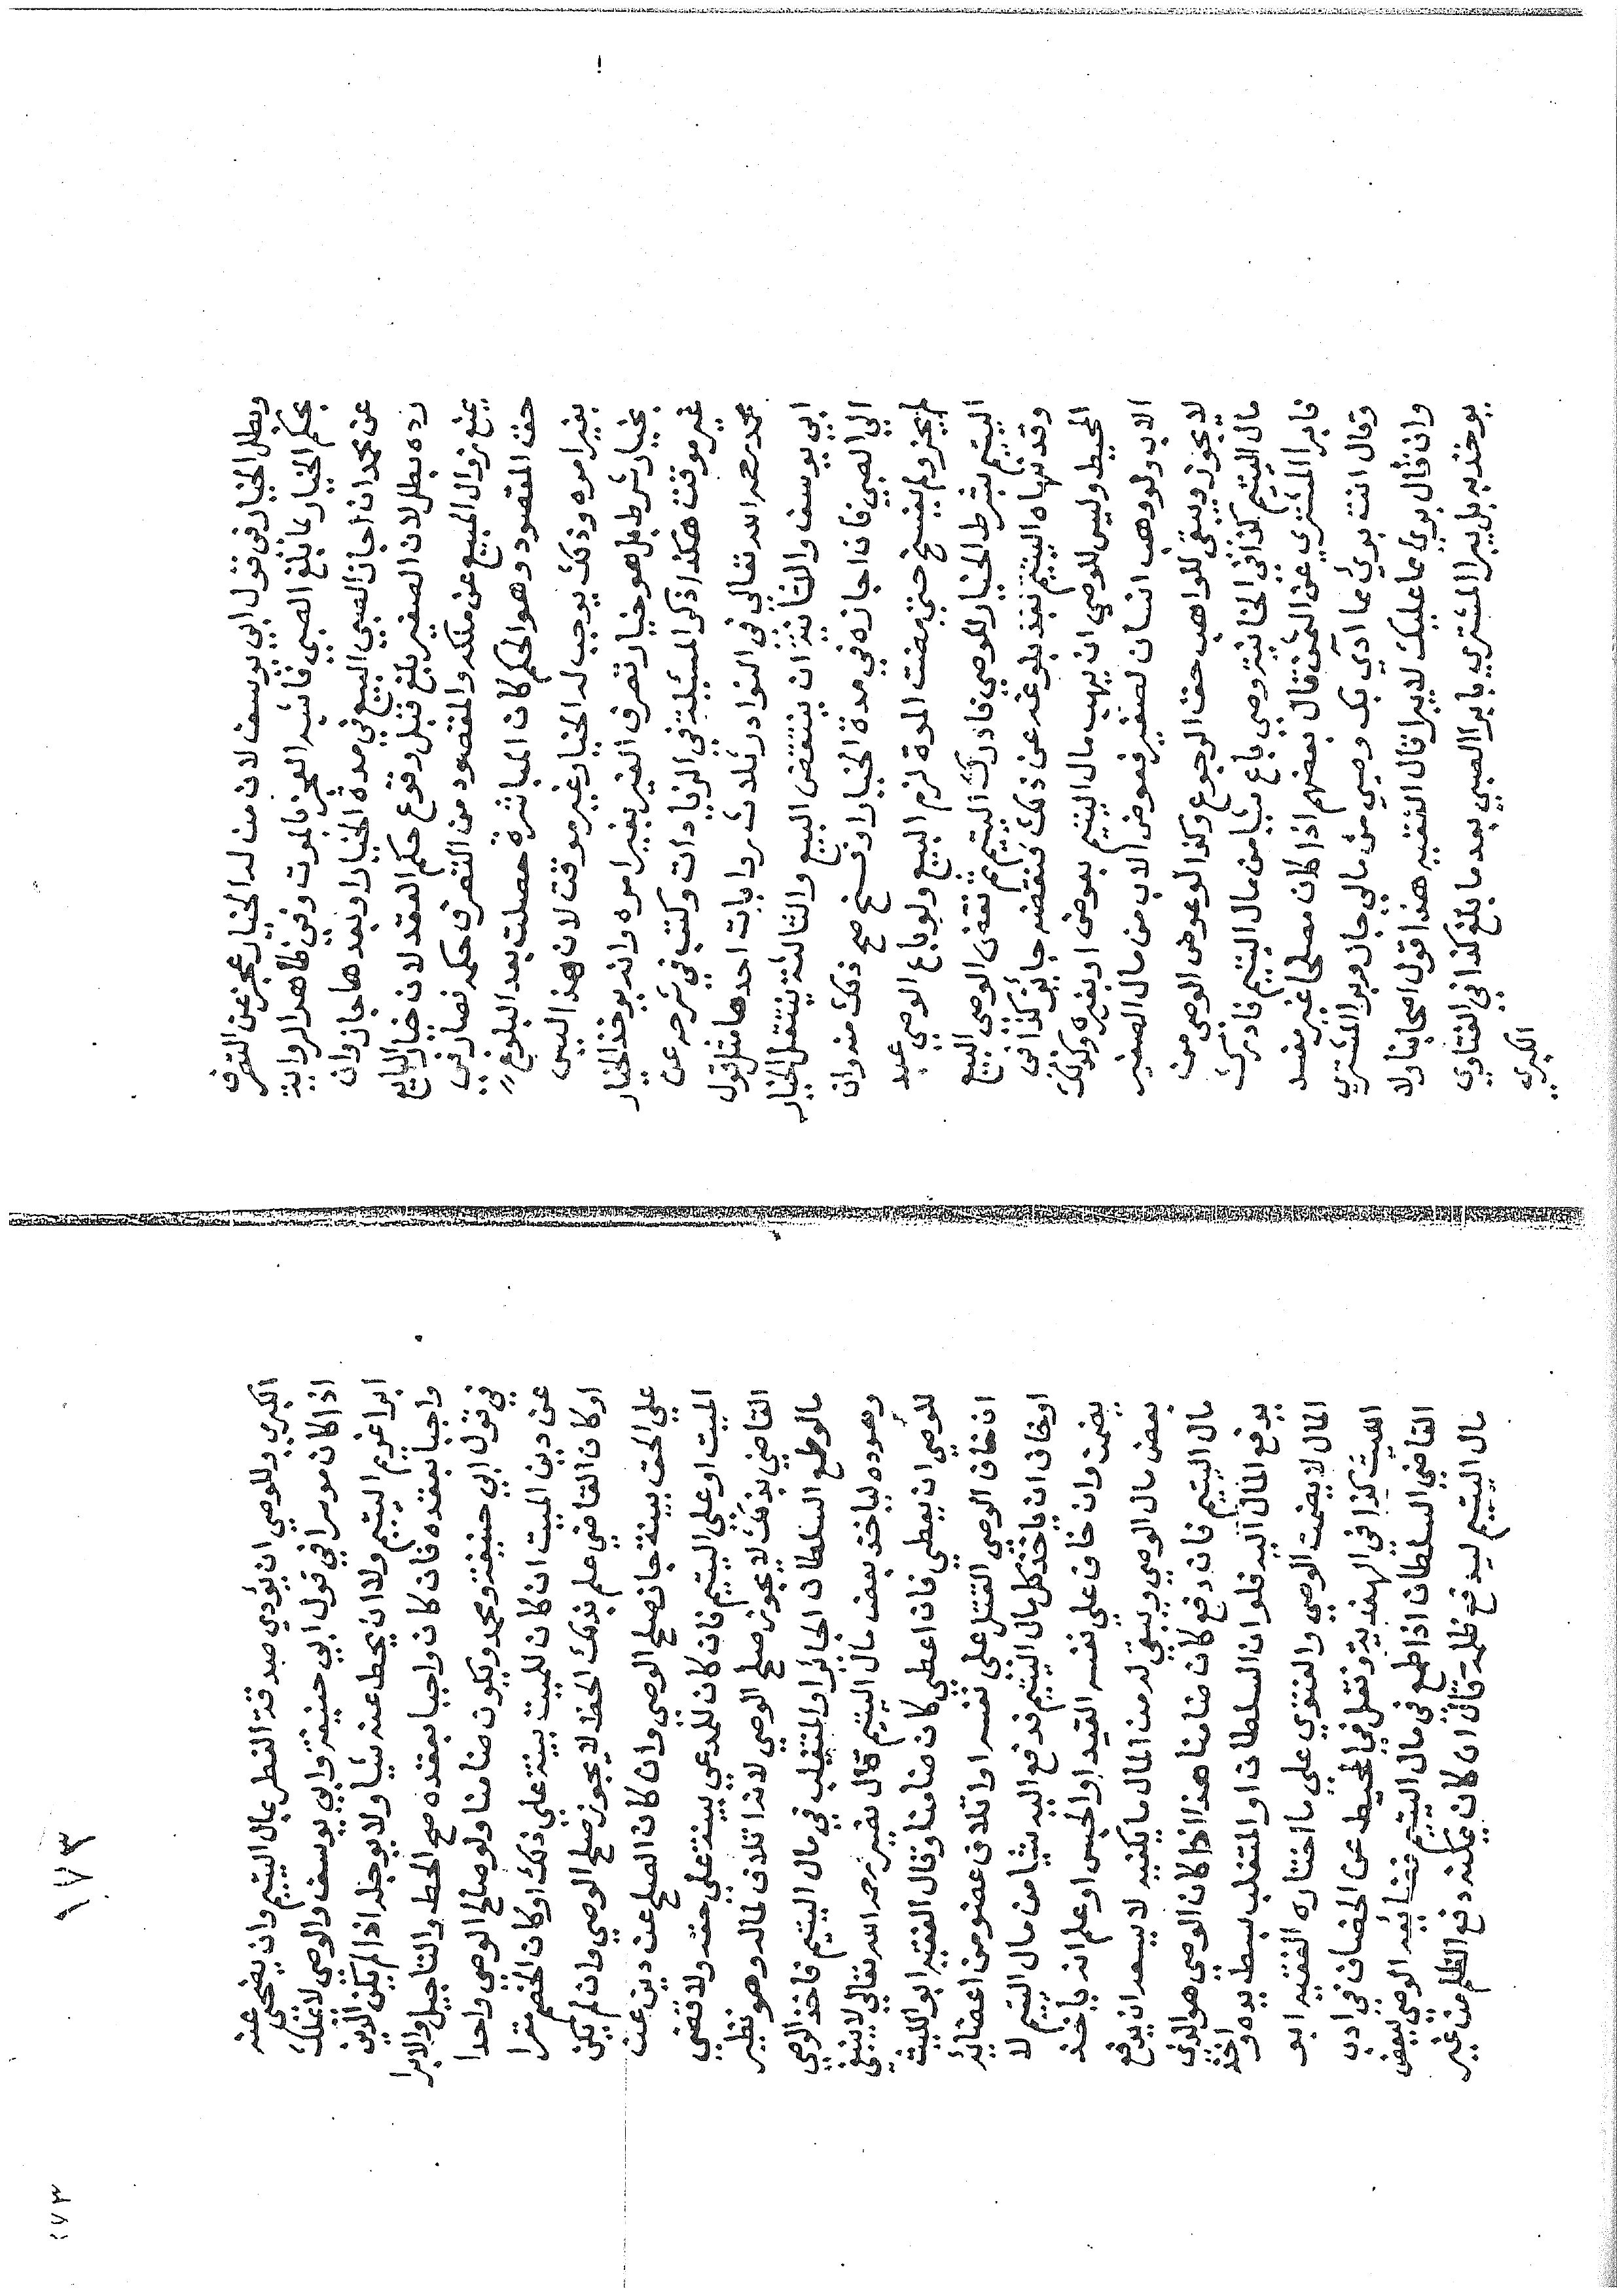 وبطل الخيار في قول ابي يوسف لان من له الخيار عجز عن التصرف
بحكم الخيار لما بلغ الصبي فاشبه العجز بالموت وفي ظاهر الرواية
عن محمد ان اجاز الصبي البيع في مدة الخيار او بعدها جاز وان
رده بطل لان الصغير بلغ قبل وقوع حكم العقد لان خيار البايع
يمنع زوال المبيع عن ملكه والمقصود من التصرف حكمه فصار في
حق المقصود وهو الحكم كان المباشرة حصلت بعد البلوغ
بغير امره وذلك يوجب له الخيار غير موقت لان هذا ليس
بخيار شرط بل هو خيار تصرف الغير بغير امره وانه يوخذ الخيار
غير موقت هكذا ذكر المسئلة في الزيادات وكتب في شرحه عن
محمد رحمه الله تعالي في النوادر ثلاث روايات احدها مثل قول
ابي يوسف والثانية ان ينتقض البيع والثالثة ينتقل الخيار
الي الصبي فان اجازه في مدة الخيار او فسخ صح ذلك منه وان
لم يجز ولم يفسخ حتي مضت المدة لزم البيع ولو باع الوصي عبد
اليتيم بشرط الخيار للوصي فادرك اليتيم ثم نقض الوصي البيع
وقد نهاه اليتيم نفذ بلوغه عن ذلك فنقضه جايز كذا في
المحيط وليس للوصي ان يهب مال اليتيم بعوض او بغيره وكذلك
الاب ولو وهب انسان لصغير فعوض الاب من مال الصغير
لا يجوز ويبقي للواهب حق الرجوع وكذا لو عوض الوصي من
مال اليتيم كذا في الخانية وصي باع شيا من مال اليتيم فادرك
فابرا المشتري عن الثمن قال بعضهم اذا كان مصلحا غير مفسد
وقال انت بري مما ادي بك وصي من مالي جاز ويبرا المشتري
وان قال بري مما عليك لا يبرا قال الفقيه هذا قول اصحابنا ولا
يوخذ به بل يبرا المشتري بابرا الصبي بعد ما بلغ كذا في الفتاوي
الكبري
١٧٣
الكبري وللوصي ان يؤدي صدقة الفطر بمال اليتيم وان يضحي عنه
اذا كان موسرا في قول ابي حنيفة وابي يوسف والوصي لا يملك
ابرا غريم اليتيم ولا ان يحط عنه شيا ولا يوجله اذا لم يكن الدين
واجبا بعقده فان كان واجبا بعقده صح الحط والتاجيل والابرا
في قول ابي حنيفة ومحمد ويكون ضامنا ولو صالح الوصي واحدا
عن دين الميت ان كان للميت بينة علي ذلك او كان الخصم مقرا
او كان القاضي علم بذلك الحظ لا يجوز صلح الوصي وان لم يكن
علي الحق بينة جاز صلح الوصي وان كان الصلح عن دين عن
الميت او علي اليتيم فان كان للمدعي بينة علي حقه ولا قضي
القاضي بذلك لا يجوز صلح الوصي لانه اتلاف لماله وهو نظير
ما لو طمع السلطان الجائر او المتغلب في مال اليتيم فاخذ الوصي
وهدده لياخذ بعض مال اليتيم قال نصير رحمه الله تعالي لا ينبغي
للوصي ان يعطي فان اعطي كان ضامنا وقال الفقيه ابو الليث
ان خاف الوصي القتل علي نفسه او اتلاف عضو من اعضائه
او خاف ان ياخذ كل مال اليتيم فدفع اليه شيا من مال اليتيم لا
يضمن وان خاف علي نفسه القيد او الحبس او علم انه ياخذ
بعض مال الوصي ويبقي له من المال ما يكفيه لا يسعه ان يدفع
مال اليتيم فان دفع كان ضامنا هذا اذا كان الوصي هو الذي
يدفع المال اليه فلو ان السلطان او المتغلب بسط يده واخذ
المال لا يضمن الوصي والفتوي علي ما اختاره الفقيه ابو
الليث كذا في الهندية ونقل في المحيط عن الخصاف في ادب
القاضي السلطان اذا طمع في مال اليتيم الوصي ببعض
مال اليتيم ليدفع ظلمه قال ان كان يمكنه دفع الظلم من غير
١٧٣